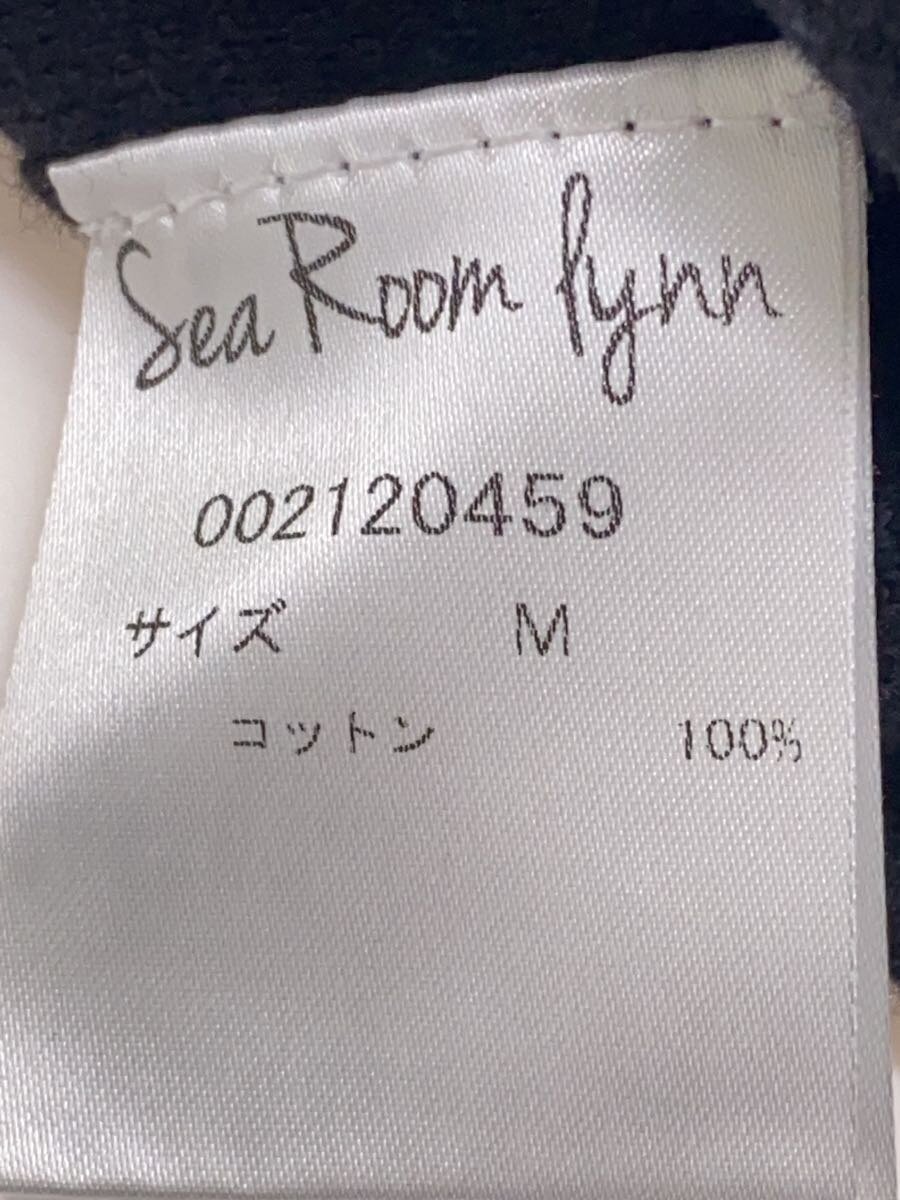 Sea Room lynn
002120459
サイズ M
コットン 100%